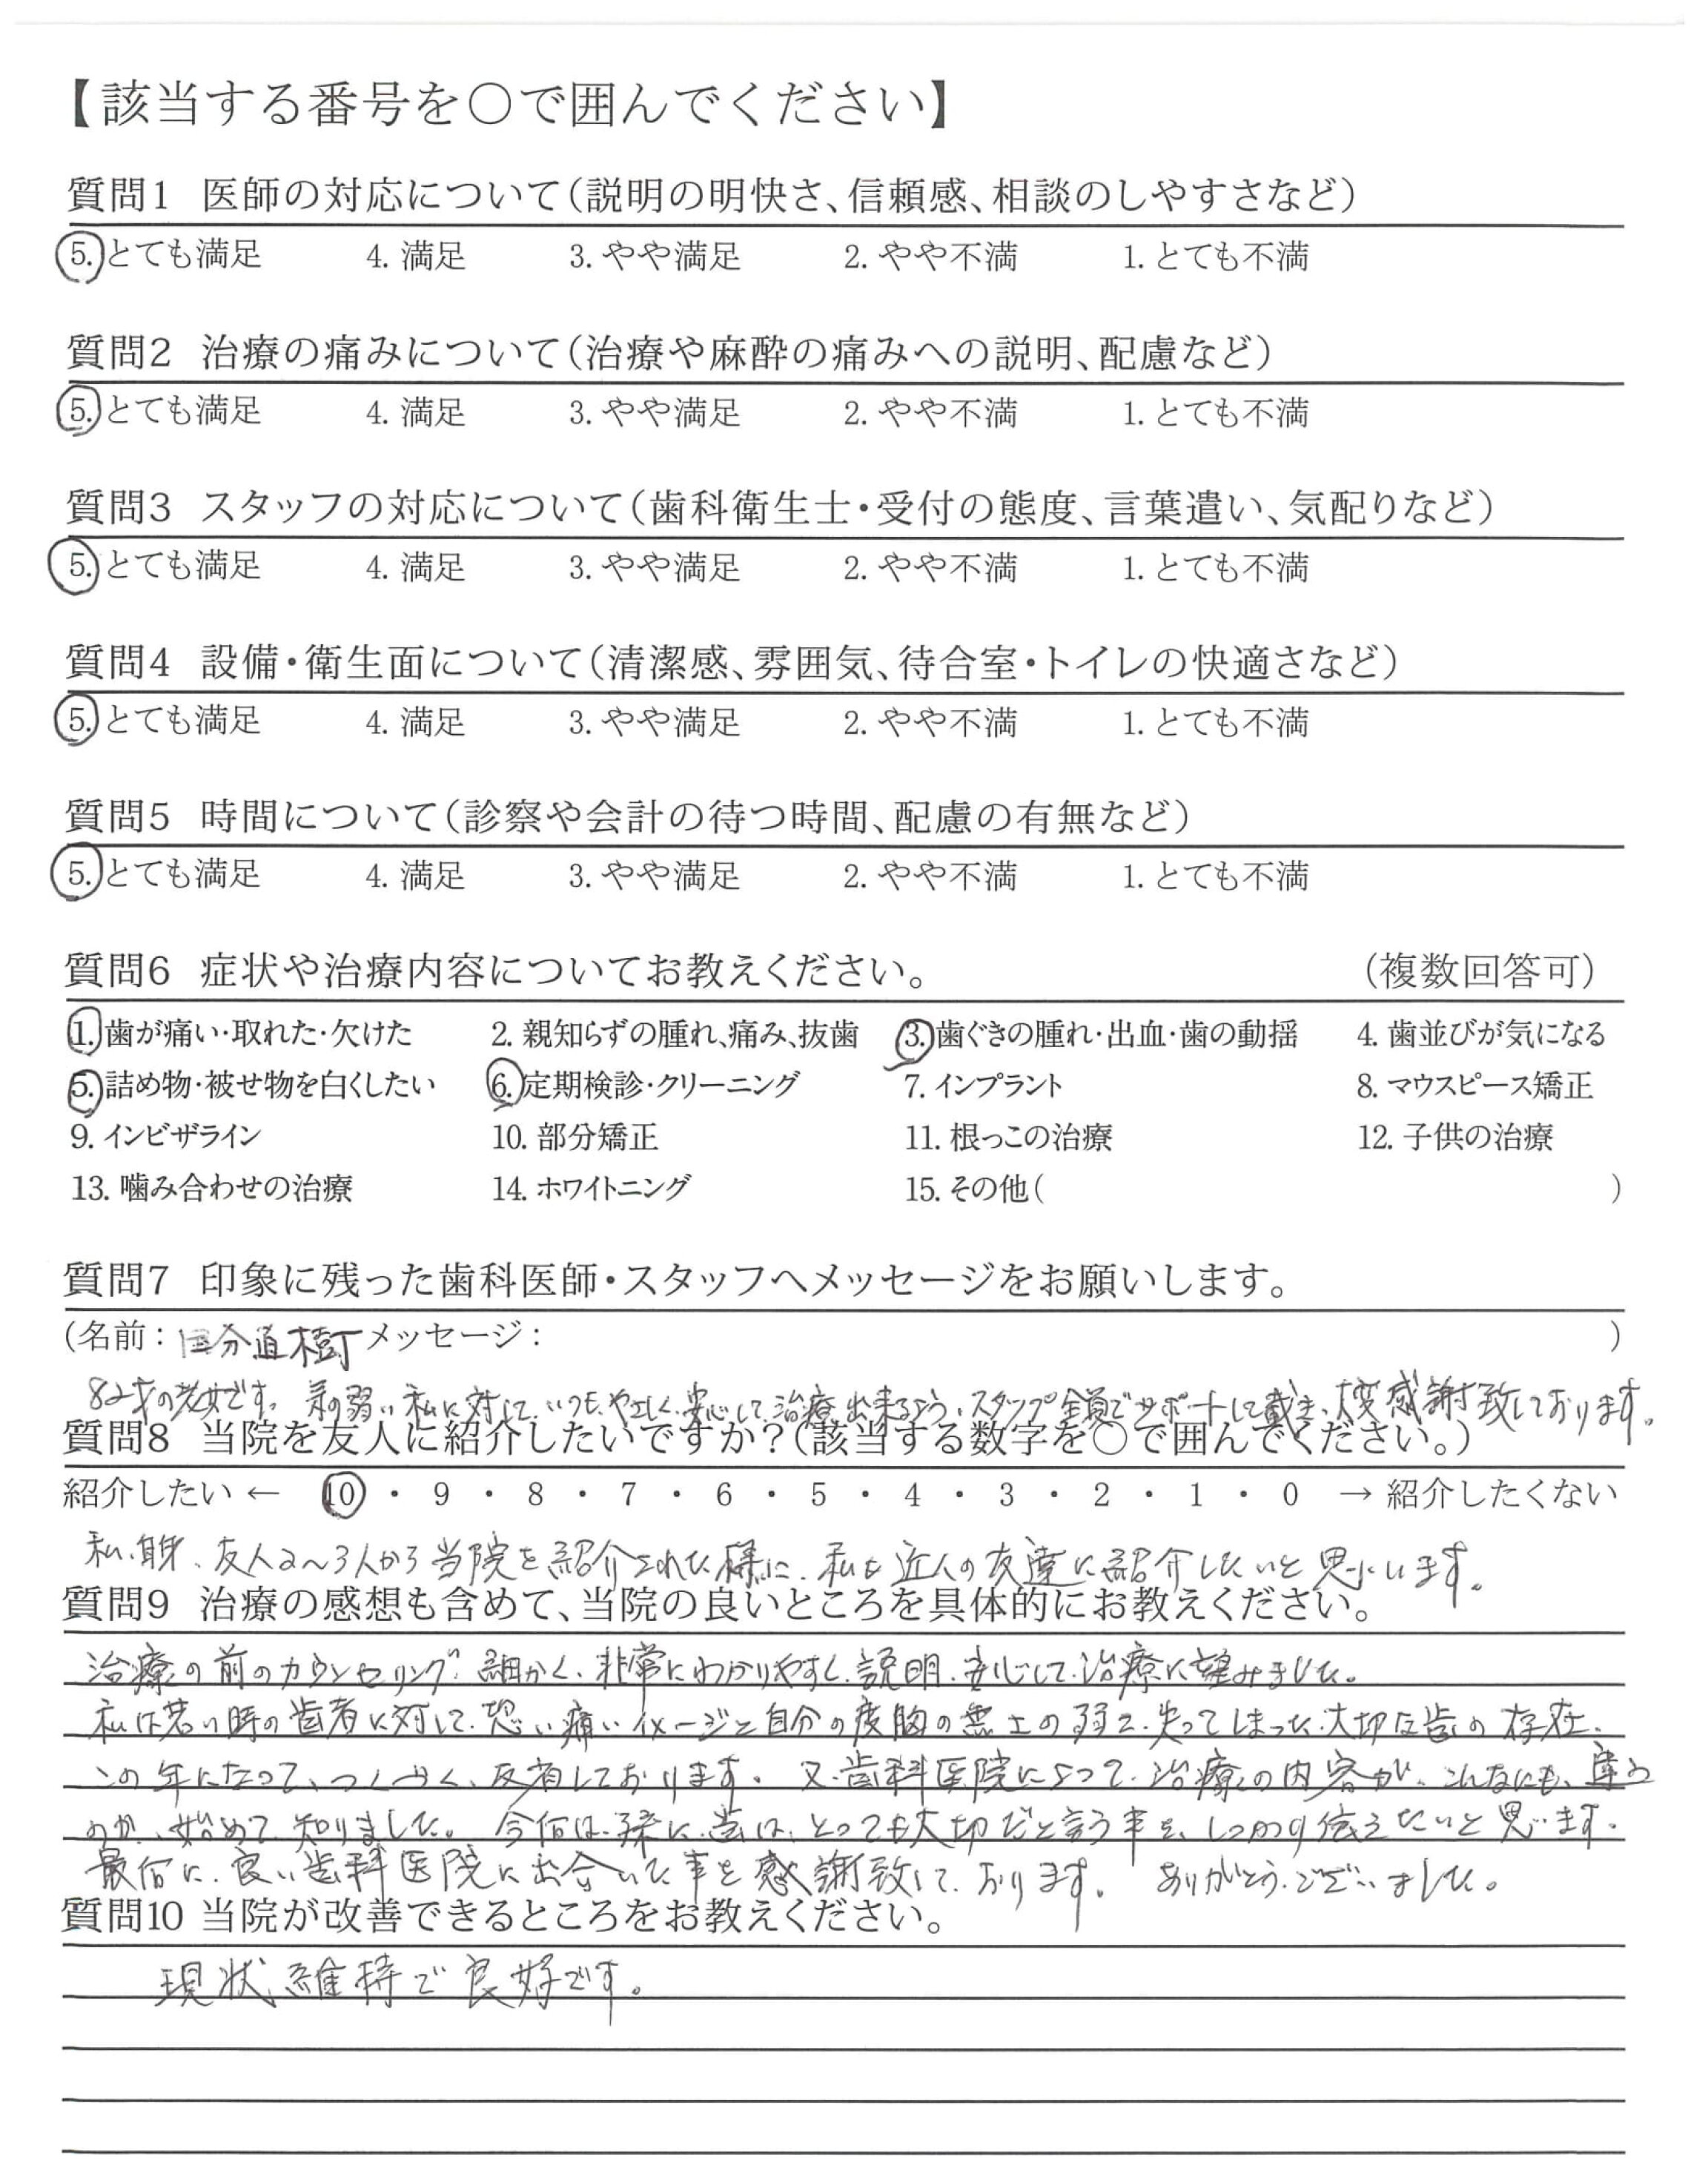 【該当する番号を○で囲んでください】
質問1 医師の対応について(説明の明快さ、信頼感、相談のしやすさなど)
5. とても満足 4. 満足 3. やや満足 2. やや不満 1. とても不満
質問2 治療の痛みについて(治療や麻酔の痛みへの説明、配慮など)
5. とても満足 4. 満足 3. やや満足 2. やや不満 1. とても不満
質問3 スタッフの対応について(歯科衛生士・受付の態度、言葉遣い、気配りなど)
5. とても満足 4. 満足 3. やや満足 2. やや不満 1. とても不満
質問4 設備・衛生面について(清潔感、雰囲気、待合室・トイレの快適さなど)
5. とても満足 4. 満足 3. やや満足 2. やや不満 1. とても不満
質問5 時間について(診察や会計の待つ時間、配慮の有無など)
5. とても満足 4. 満足 3. やや満足 2. やや不満 1. とても不満
質問6 症状や治療内容についてお教えください。 (複数回答可)
1. 歯が痛い・取れた・欠けた 2. 親知らずの腫れ、痛み、抜歯 3. 歯ぐきの腫れ・出血・歯の動揺 4. 歯並びが気になる
5. 詰め物・被せ物を白くしたい 6. 定期検診・クリーニング 7. インプラント 8. マウスピース矯正
9. インビザライン 10. 部分矯正 11. 根っこの治療 12. 子供の治療
13. 噛み合わせの治療 14. ホワイトニング 15. その他( )
質問7 印象に残った歯科医師・スタッフへメッセージをお願いします。
(名前: 国分道樹 メッセージ: )
82才の老女です。気の弱い私に対して、いつも、やさしく、安心して、治療出来るよう、スタッフ全員でサポートして戴き、大変感謝致しております。
質問8 当院を友人に紹介したいですか?(該当する数字を○で囲んでください。)
紹介したい ← 10 ・ 9 ・ 8 ・ 7 ・ 6 ・ 5 ・ 4 ・ 3 ・ 2 ・ 1 ・ 0 → 紹介したくない
私、自身、友人2〜3人から当院を紹介された様に、私も近人の友達に紹介したいと思います。
質問9 治療の感想も含めて、当院の良いところを具体的にお教えください。
治療の前のカウンセリング、細かく、非常にわかりやすく、説明、安心して、治療に望みました。
私は若い時の歯者に対して、恐い痛いイメージと自分の度胸の無さの弱さ、失ってしまった、大切な歯の存在、
この年になって、つくづく、反省しております。 又、歯科医院によって、治療の内容が、こんなにも、違う
のか、始めて、知りました。 今後は、孫に、歯は、とっても大切だと言う事を、しっかり伝えたいと思います。
最后に、良い歯科医院に出合いた事を感謝致して、おります。 ありがとう、ございました。
質問10 当院が改善できるところをお教えください。
現状維持で良好です。